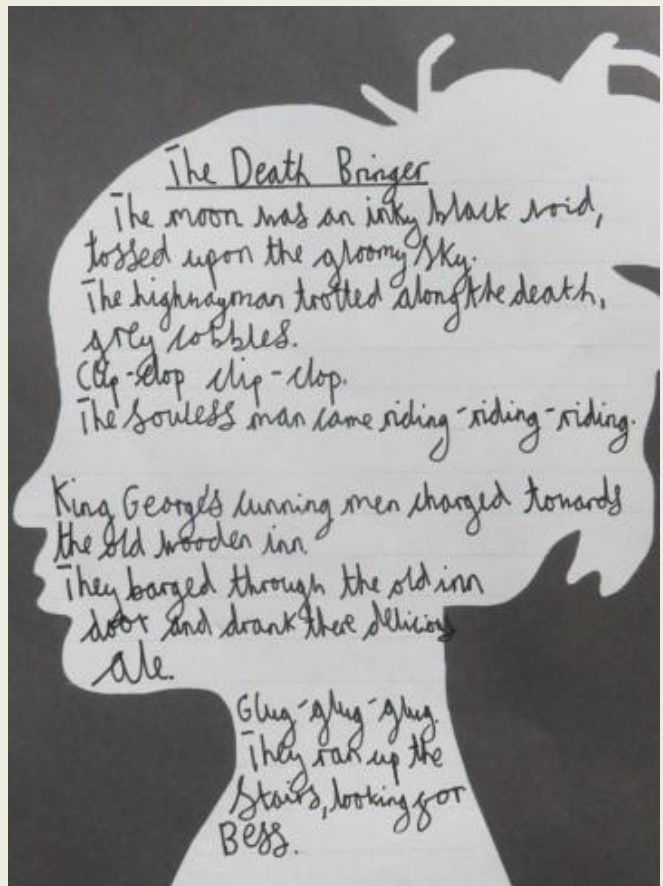 The Death Bringer
The moon was an inky black void,
tossed upon the gloomy sky.
The highwayman trotted along the death,
grey cobbles.
Clip-clop clip-clop.
The souless man came riding-riding-riding.
King George's cunning men charged towards
the old wooden inn.
They barged through the old inn
door and drank there delicious
ale.
Glug-glug-glug.
They ran up the
stairs, looking for
Bess.